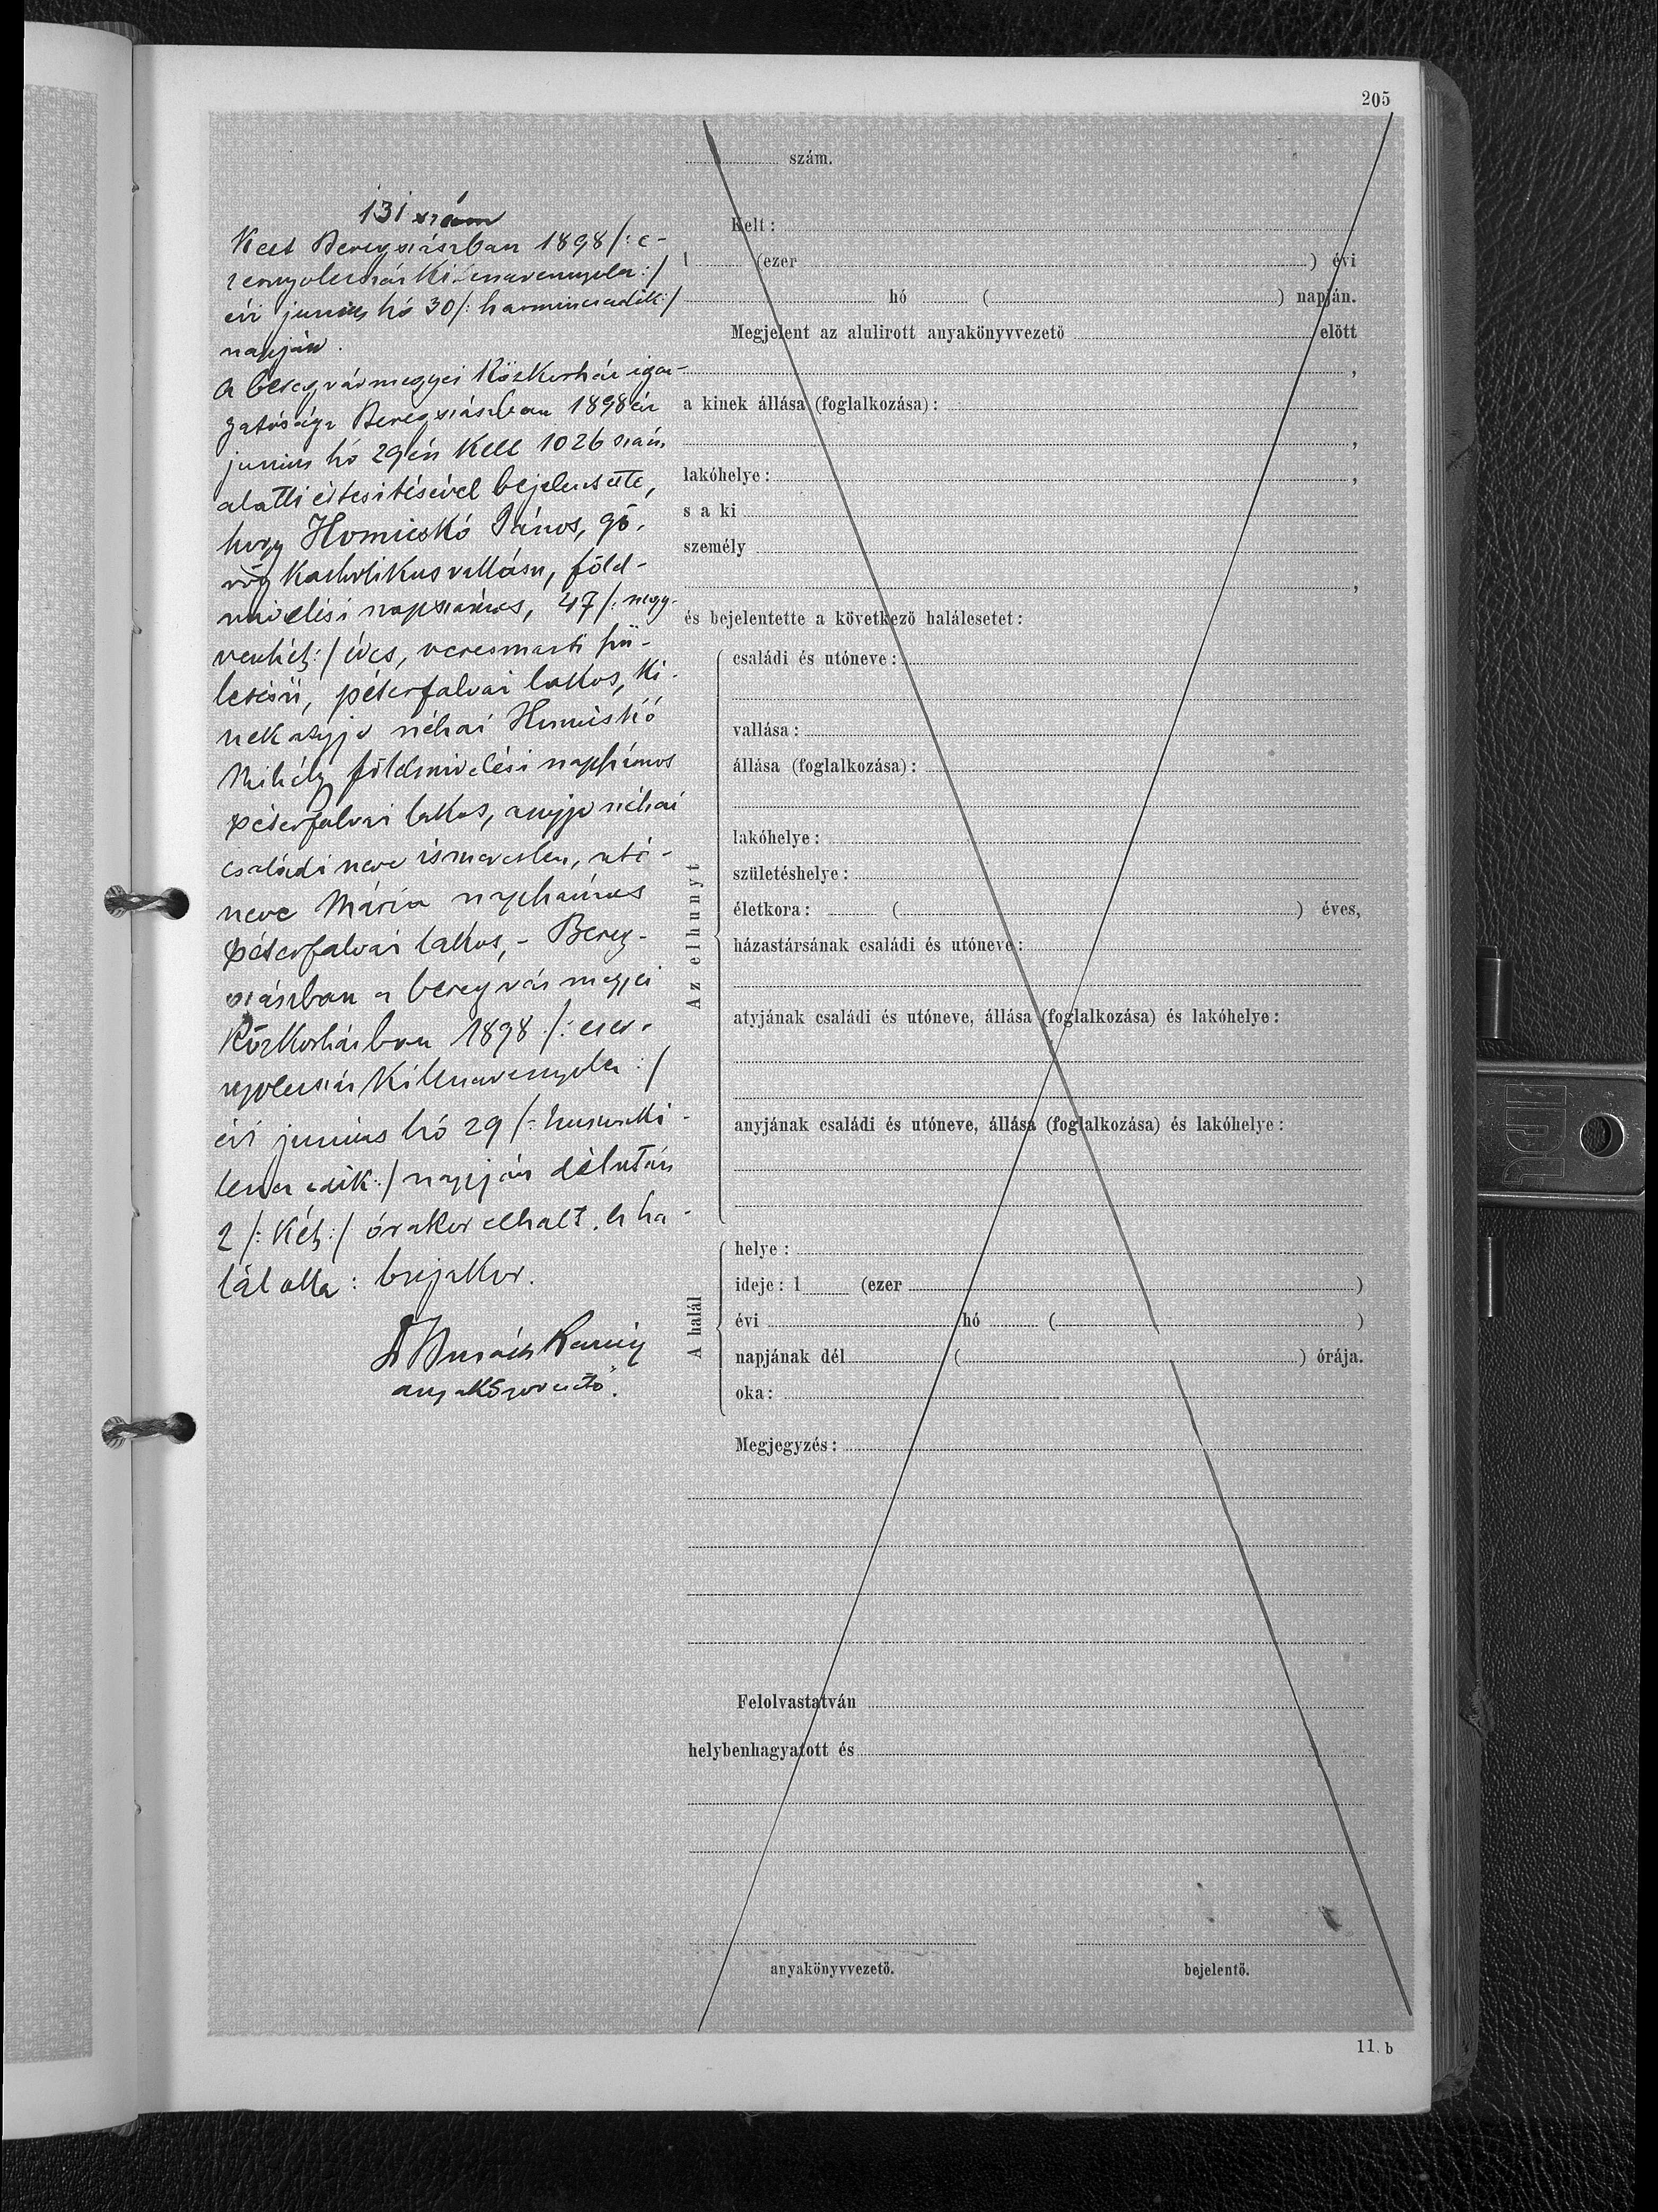 205
131 szám
Kelt Beregszászban 1898 /: e-
zernyolczszázkilenczvennyolcz :/
évi junius hó 30 /: harminczadik :/
napján.
A beregvármegyei Közkorház igaz-
gatósága Beregszászban 1898 évi
junius hó 29én kelt 1026 szám
alatti értesitésével bejelentette,
hogy Homicskó János, gö-
rög katholikus vallásu, föld-
mivelési napszámos, 47 /: negy-
venhét :/ éves, veresmarti szü-
letésü, péterfalvai lakos, ki-
nek atyja néhai Homicskó
Mihály földmivelési napszámos
péterfalvai lakos, anyja néhai
családi neve ismeretlen, utó-
neve Mária napszámos
péterfalvai lakos, - Bereg-
szászban a beregvármegyei
Közkorházban 1898 /: ezer-
nyolczszázkilenczvennyolcz :/
évi junius hó 29 /: huszonki-
lenczedik :/ napján délután
2 /: két :/ órakor elhalt. A ha-
lál oka: bujakor.
anyakönyvvezető.
szám.
Kelt :
1 (ezer ) évi
hó ( ) napján.
Megjelent az alulirott anyakönyvvezető előtt
,
a kinek állása (foglalkozása) :
,
lakóhelye : ,
s a ki
személy
,
és bejelentette a következő halálesetet :
Az elhunyt
családi és utóneve :
vallása :
állása (foglalkozása) :
lakóhelye :
születéshelye :
életkora : ( ) éves,
házastársának családi és utóneve :
atyjának családi és utóneve, állása (foglalkozása) és lakóhelye :
anyjának családi és utóneve, állása (foglalkozása) és lakóhelye :
A halál
helye :
ideje : 1 (ezer )
évi hó ( )
napjának dél ( ) órája.
oka :
Megjegyzés :
Felolvastatván
helybenhagyatott és
anyakönyvvezető. bejelentő.
11. b